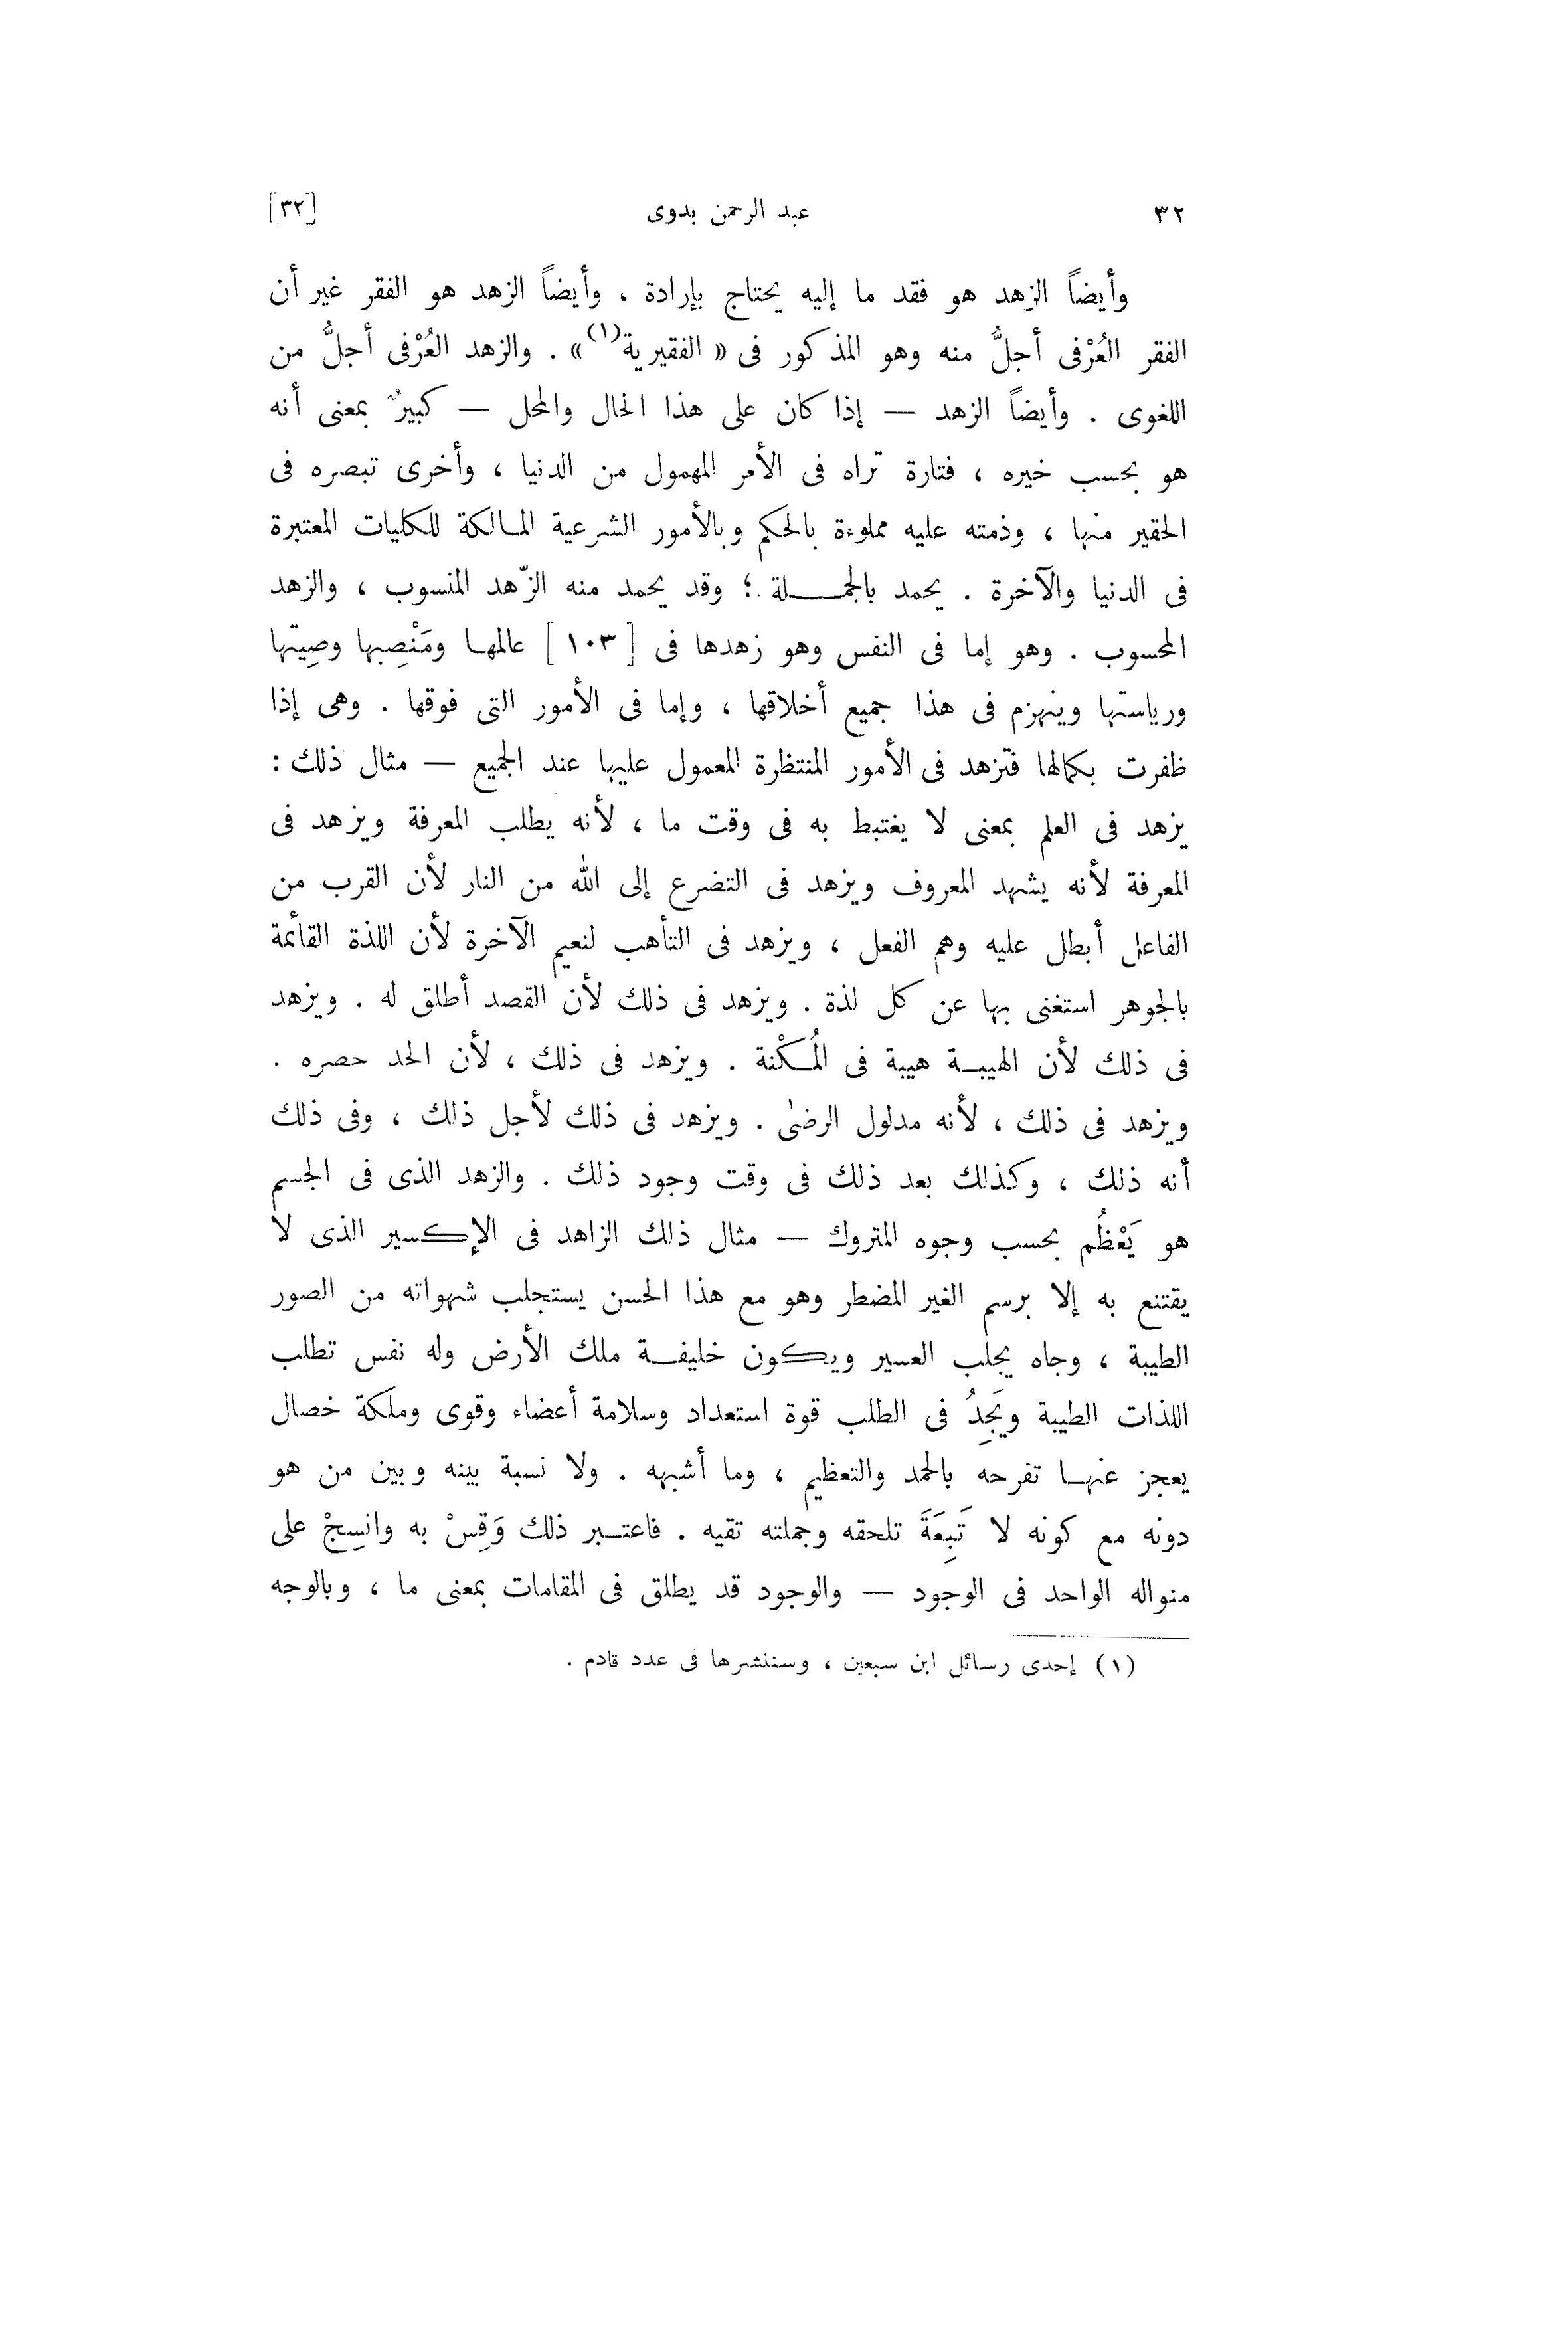 ٣٢ عبد الرحمن بدوى [٣٢]
وأيضاً الزهد هو فقد ما إليه يحتاج بإرادة ، وأيضاً الزهد هو الفقر غير أن
الفقر العُرْفى أجلُّ منه وهو المذكور فى « الفقيرية(١) » . والزهد العُرْفى أجلُّ من
اللغوى . وأيضاً الزهد — إذا كان على هذا الحال والمحل — كبيرٌ بمعنى أنه
هو بحسب خيره ، فتارة تراه فى الأمر المهمول من الدنيا ، وأخرى تبصره فى
الحقير منها ، وذمته عليه مملوءة بالحكم وبالأمور الشرعية المالكة للكليات المعتبرة
فى الدنيا والآخرة . يحمد بالجملة ؛ وقد يحمد منه الزّهد المنسوب ، والزهد
المحسوب . وهو إما فى النفس وهو زهدها فى [ ١٠٣ ] عالمها ومَنْصِبها وصِيتها
ورياستها وينهزم فى هذا جميع أخلاقها ، وإما فى الأمور التى فوقها . وهى إذا
ظفرت بكمالها فتزهد فى الأمور المنتظرة المعمول عليها عند الجميع — مثال ذلك :
يزهد فى العلم بمعنى لا يغتبط به فى وقت ما ، لأنه يطلب المعرفة ويزهد فى
المعرفة لأنه يشهد المعروف ويزهد فى التضرع إلى الله من النار لأن القرب من
الفاعل أبطل عليه وهم الفعل ، ويزهد فى التأهب لنعيم الآخرة لأن اللذة القائمة
بالجوهر استغنى بها عن كل لذة . ويزهد فى ذلك لأن القصد أطلق له . ويزهد
فى ذلك لأن الهيبة هيبة فى المُكْنة . ويزهد فى ذلك ، لأن الحد حصره .
ويزهد فى ذلك ، لأنه مدلول الرضىٰ . ويزهد فى ذلك لأجل ذلك ، وفى ذلك
أنه ذلك ، وكذلك بعد ذلك فى وقت وجود ذلك . والزهد الذى فى الجسم
هو يَعْظُم بحسب وجوه المتروك — مثال ذلك الزاهد فى الإكسير الذى لا
يقتنع به إلا برسم الغير المضطر وهو مع هذا الحسن يستجلب شهواته من الصور
الطيبة ، وجاه يجلب العسير ويكون خليفة ملك الأرض وله نفس تطلب
اللذات الطيبة ويَجِدُ فى الطلب قوة استعداد وسلامة أعضاء وقوى وملكة خصال
يعجز عنها تفرحه بالحمد والتعظيم ، وما أشبهه . ولا نسبة بينه وبين من هو
دونه مع كونه لا تَبِعَةَ تلحقه وجملته تقيه . فاعتبر ذلك وَقِسْ به وانسِجْ على
منواله الواحد فى الوجود — والوجود قد يطلق فى المقامات بمعنى ما ، وبالوجه
(١) إحدى رسائل ابن سبعين ، وسننشرها فى عدد قادم .